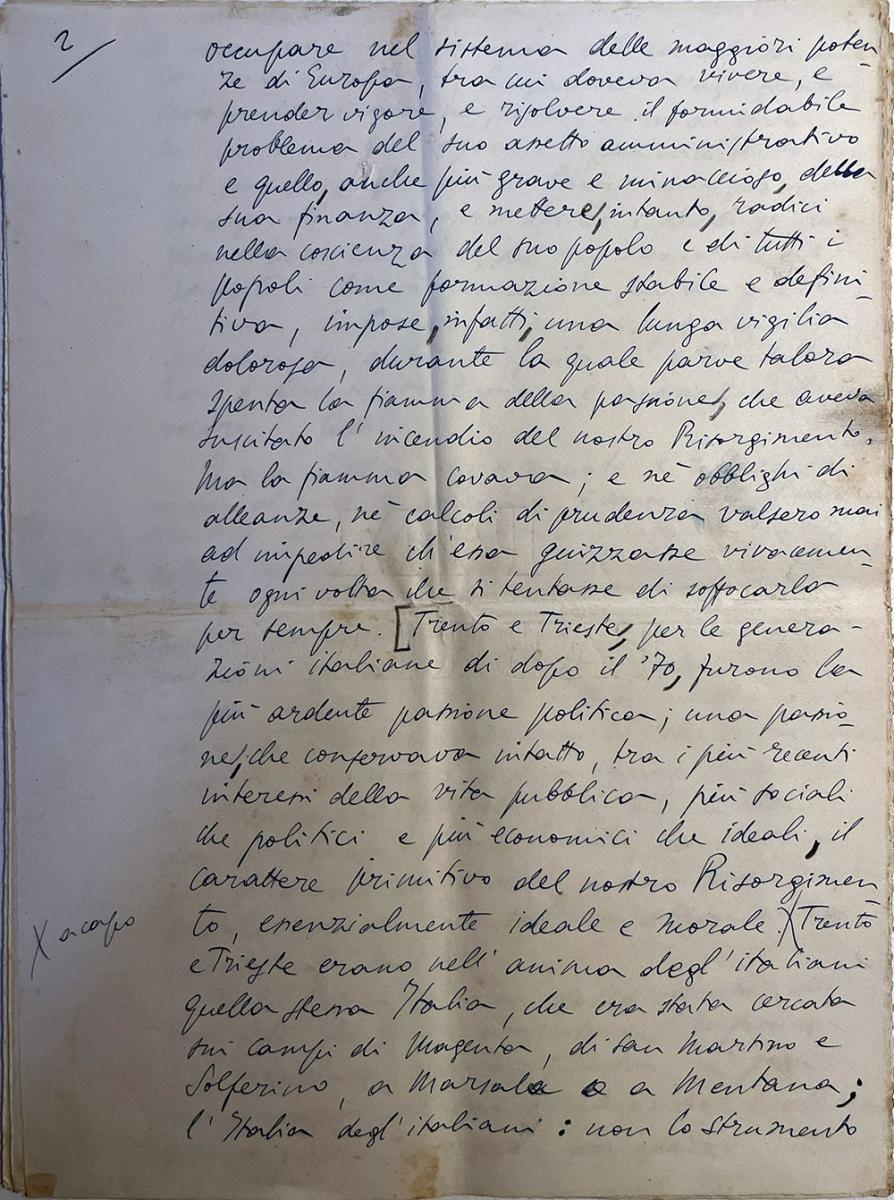 2/
occupare nel sistema delle maggiori poten-
ze di Europa, tra cui doveva vivere, e
prender vigore, e risolvere il formidabile
problema del suo assetto amministrativo
e quello, anche più grave e minaccioso, della
sua finanza, e mettere, intanto, radici
nella coscienza del suo popolo e di tutti i
popoli come formazione stabile e defini-
tiva, impose, infatti, una lunga vigilia
dolorosa, durante la quale parve talora
spenta la fiamma della passione, che aveva
suscitato l'incendio del nostro Risorgimento.
Ma la fiamma covava; e nè obblighi di
alleanze, nè calcoli di prudenza valsero mai
ad impedire ch'essa guizzasse vivacemen-
te ogni volta che si tentasse di soffocarla
per sempre. [Trento e Trieste, per le genera-
zioni italiane di dopo il '70, furono la
più ardente passione politica; una passio-
ne, che conservava intatto, tra i più recenti
interessi della vita pubblica, più sociali
che politici e più economici che ideali, il
carattere primitivo del nostro Risorgimen-
X a capo
to, essenzialmente ideale e morale. X Trento
e Trieste erano nell'anima degl'italiani
quella stessa Italia, che era stata cercata
sui campi di Magenta, di San Martino e
Solferino, a Marsala a Mentana;
l'Italia degl'italiani: non lo strumento